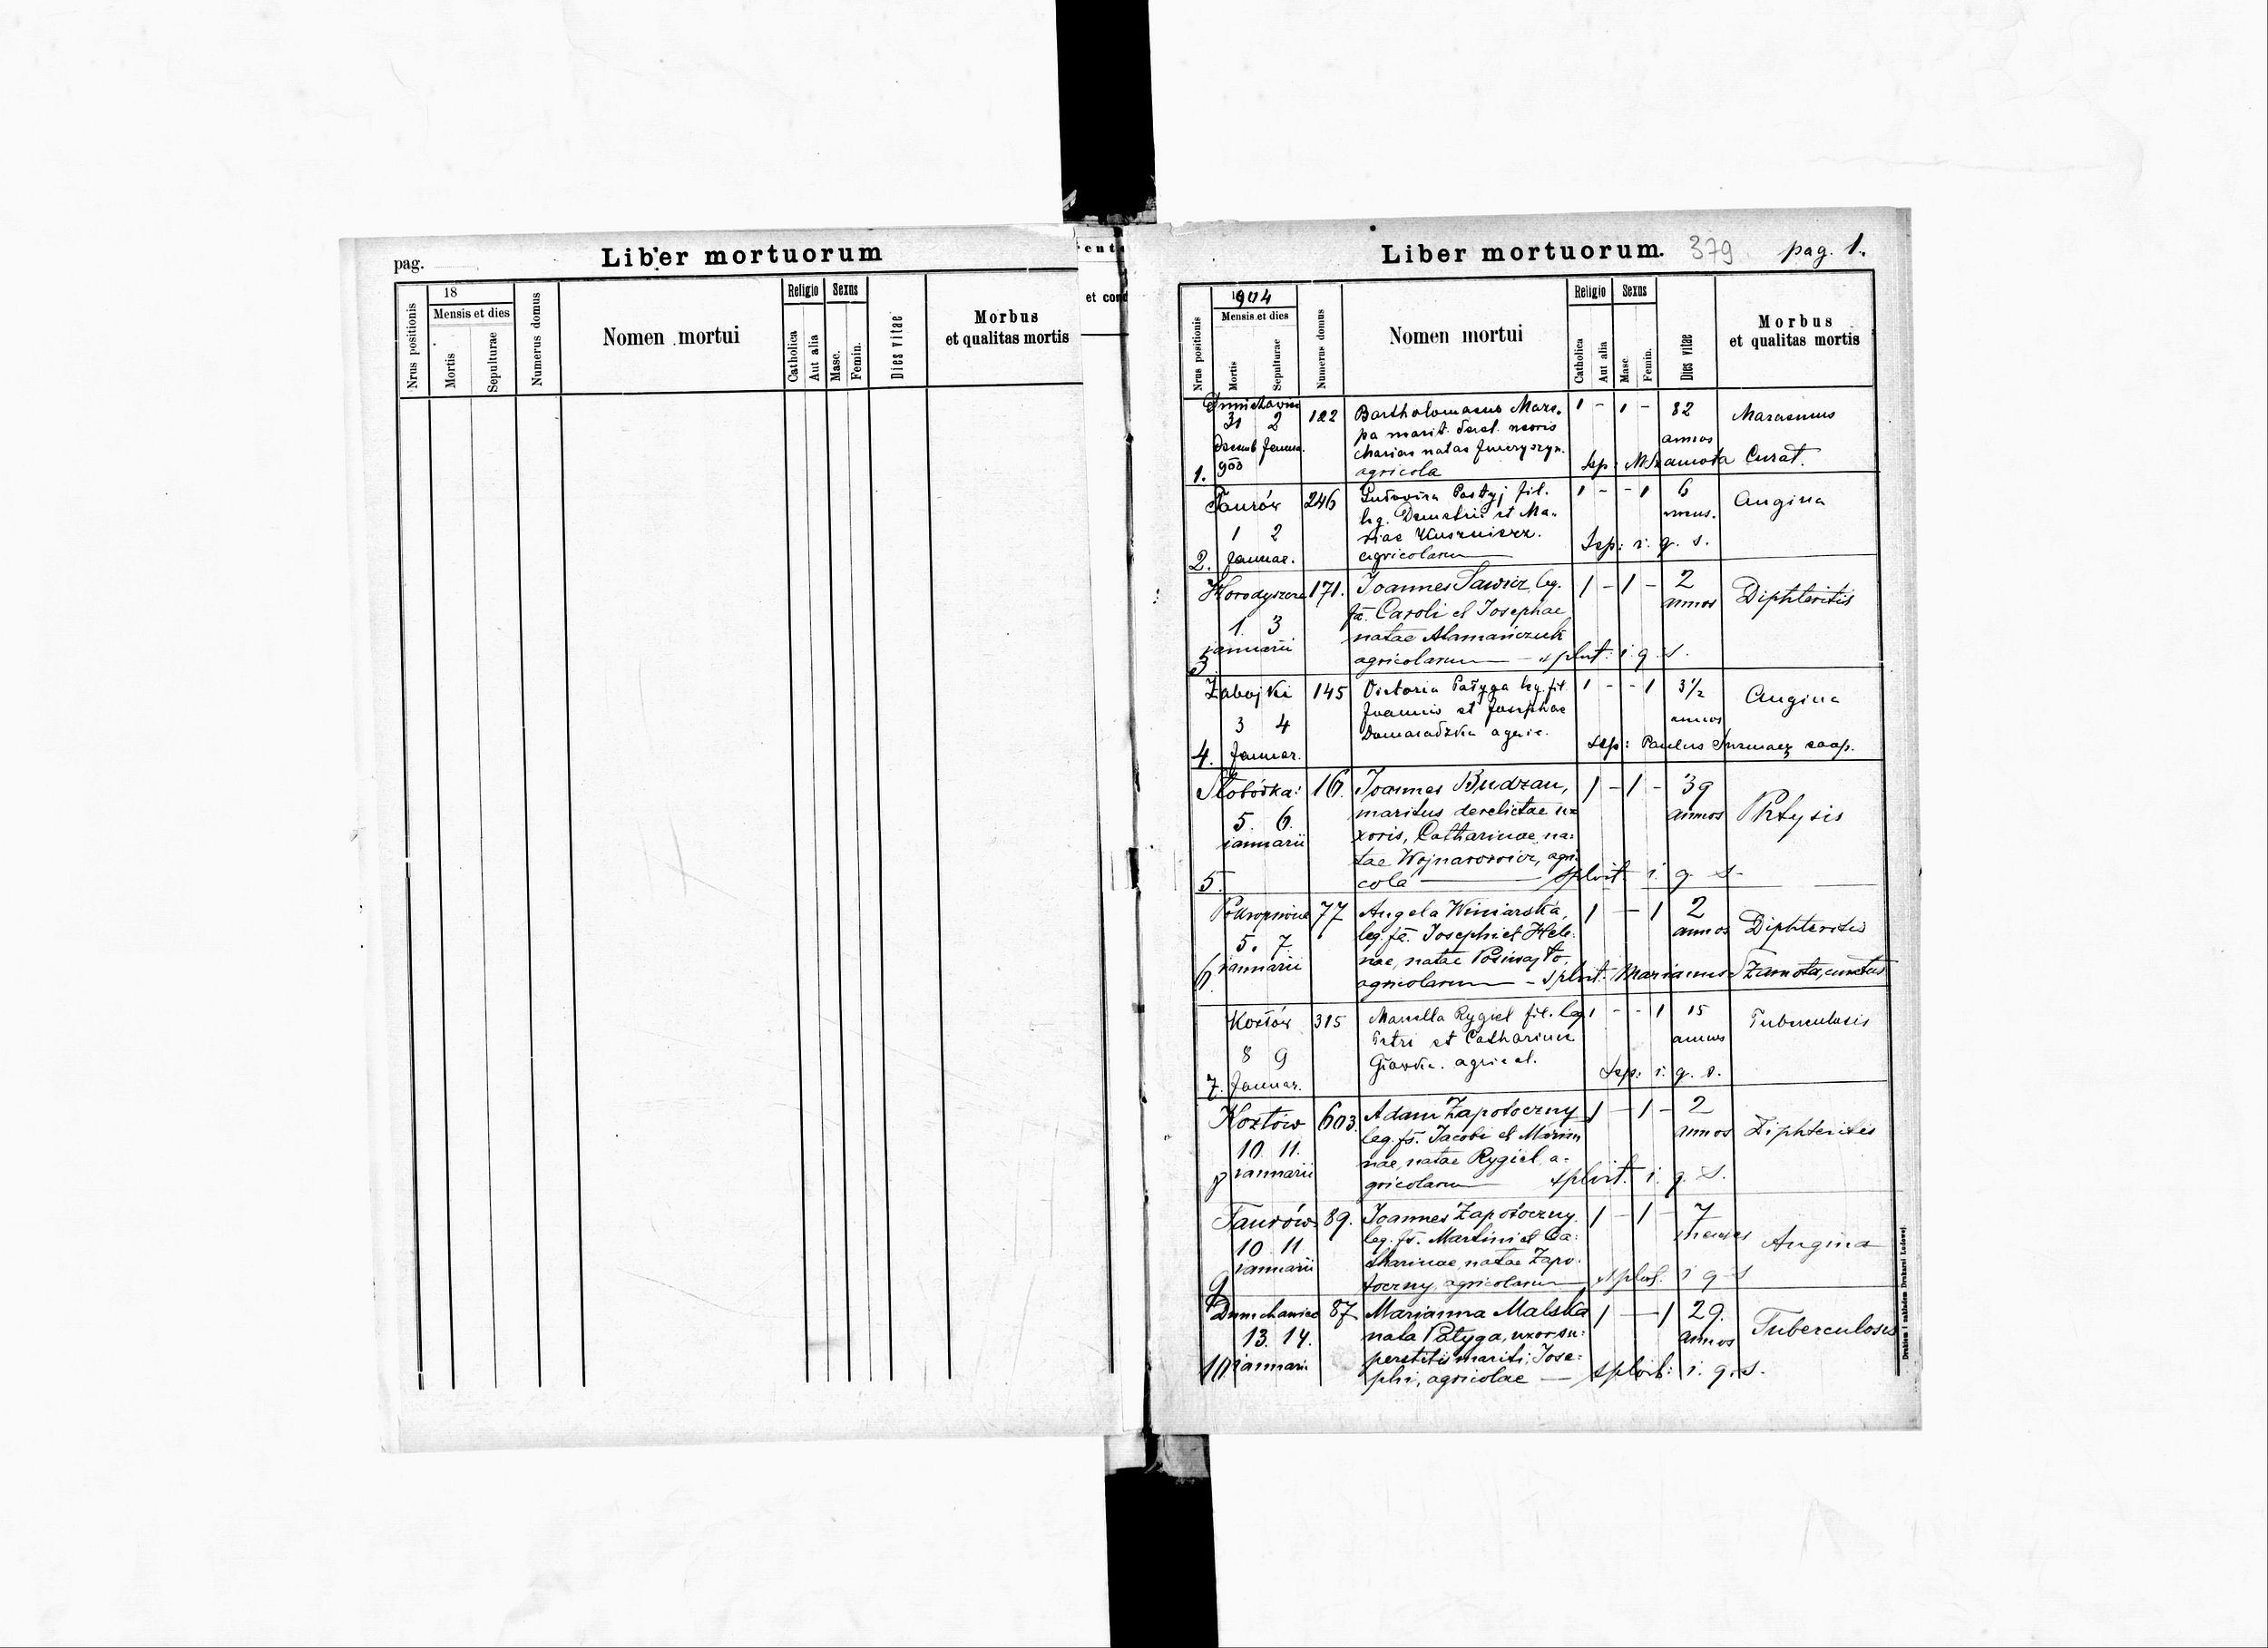 pag.
Liber mortuorum
Nrus positionis
18
Mensis et dies
Mortis
Sepulturae
Numerus domus
Nomen mortui
Religio
Catholica
Aut alia
Sexus
Masc.
Femin.
Dies vitae
Morbus
et qualitas mortis
et cond
Liber mortuorum. 379 pag. 1.
Nrus positionis
1904
Mensis et dies
Mortis
Sepulturae
Numerus domus
Nomen mortui
Religio
Catholica
Aut alia
Sexus
Masc.
Femin.
Dies vitae
Morbus
et qualitas mortis
122 Bartholomaeus 1 - 1 - 82 Marasmus
31 2
pa marit. derel. uxoris annos
natae
903
1. agricola Sep: M Szamota Curat.
Taurów 246 Ludovica fil. 1 - - 1 6 Angina
leg. Demetrii et Ma- mens.
1 2 riae
2. Januar. agricolarum Sep: i. q. s.
171. Joannes Sawicz, leg. 1 - 1 - 2 Diphteritis
fs. Caroli et Josephae annos
1. 3 natae
3. januarii agricolarum splvit: i. q. s.
Zabojki 145 Victoria Pałyga leg. fil. 1 - - 1 3½ Angina
Joannis et Josephae annos
3 4 agric.
4. Januar. Sep: Paulus coop.
Słobódka: 16. Joannes Budzan, 1 - 1 - 39 Phtysis
maritus derelictae u= annos
5. 6. xoris, Catharinae, na=
januarii tae Wojnarowicz, agri=
5. cola splvit i. q. s.
77 Angela Winiarska, 1 - 1 2 Diphteritis
leg. fa. Josephi et Hele= annos
5. 7. nae, natae
6. januarii agricolarum - splvit. Marianus Szamota, curatus
Kozłów 315 Marcella Rygiel fil. leg. 1 - - 1 15 Tuberculosis
Petri et Catharinae annos
8 9 agricol.
7. Januar. Sep: i. q. s.
Kozłów 603. Adam Zapotoczny 1 - 1 - 2 Diphteritis
leg. fs. Jacobi et Marian annos
10. 11. nae, natae Rygiel, a=
8 januarii gricolarum splvit. i. q. s.
Taurów 89. Joannes Zapotoczny. 1 - 1 - 7 Angina
leg. fs. Martini et Ca= menses
10 11 tharinae, natae Zapo=
januarii
9 toczny, agricolarum splvit. i q s
87 Marianna Malska 1 - 1 29. Tuberculosis
nata Pałyga, uxor su= annos
13. 14. perstitis mariti, Jose=
10 januarii phi, agricolae splvit: i. q. s.